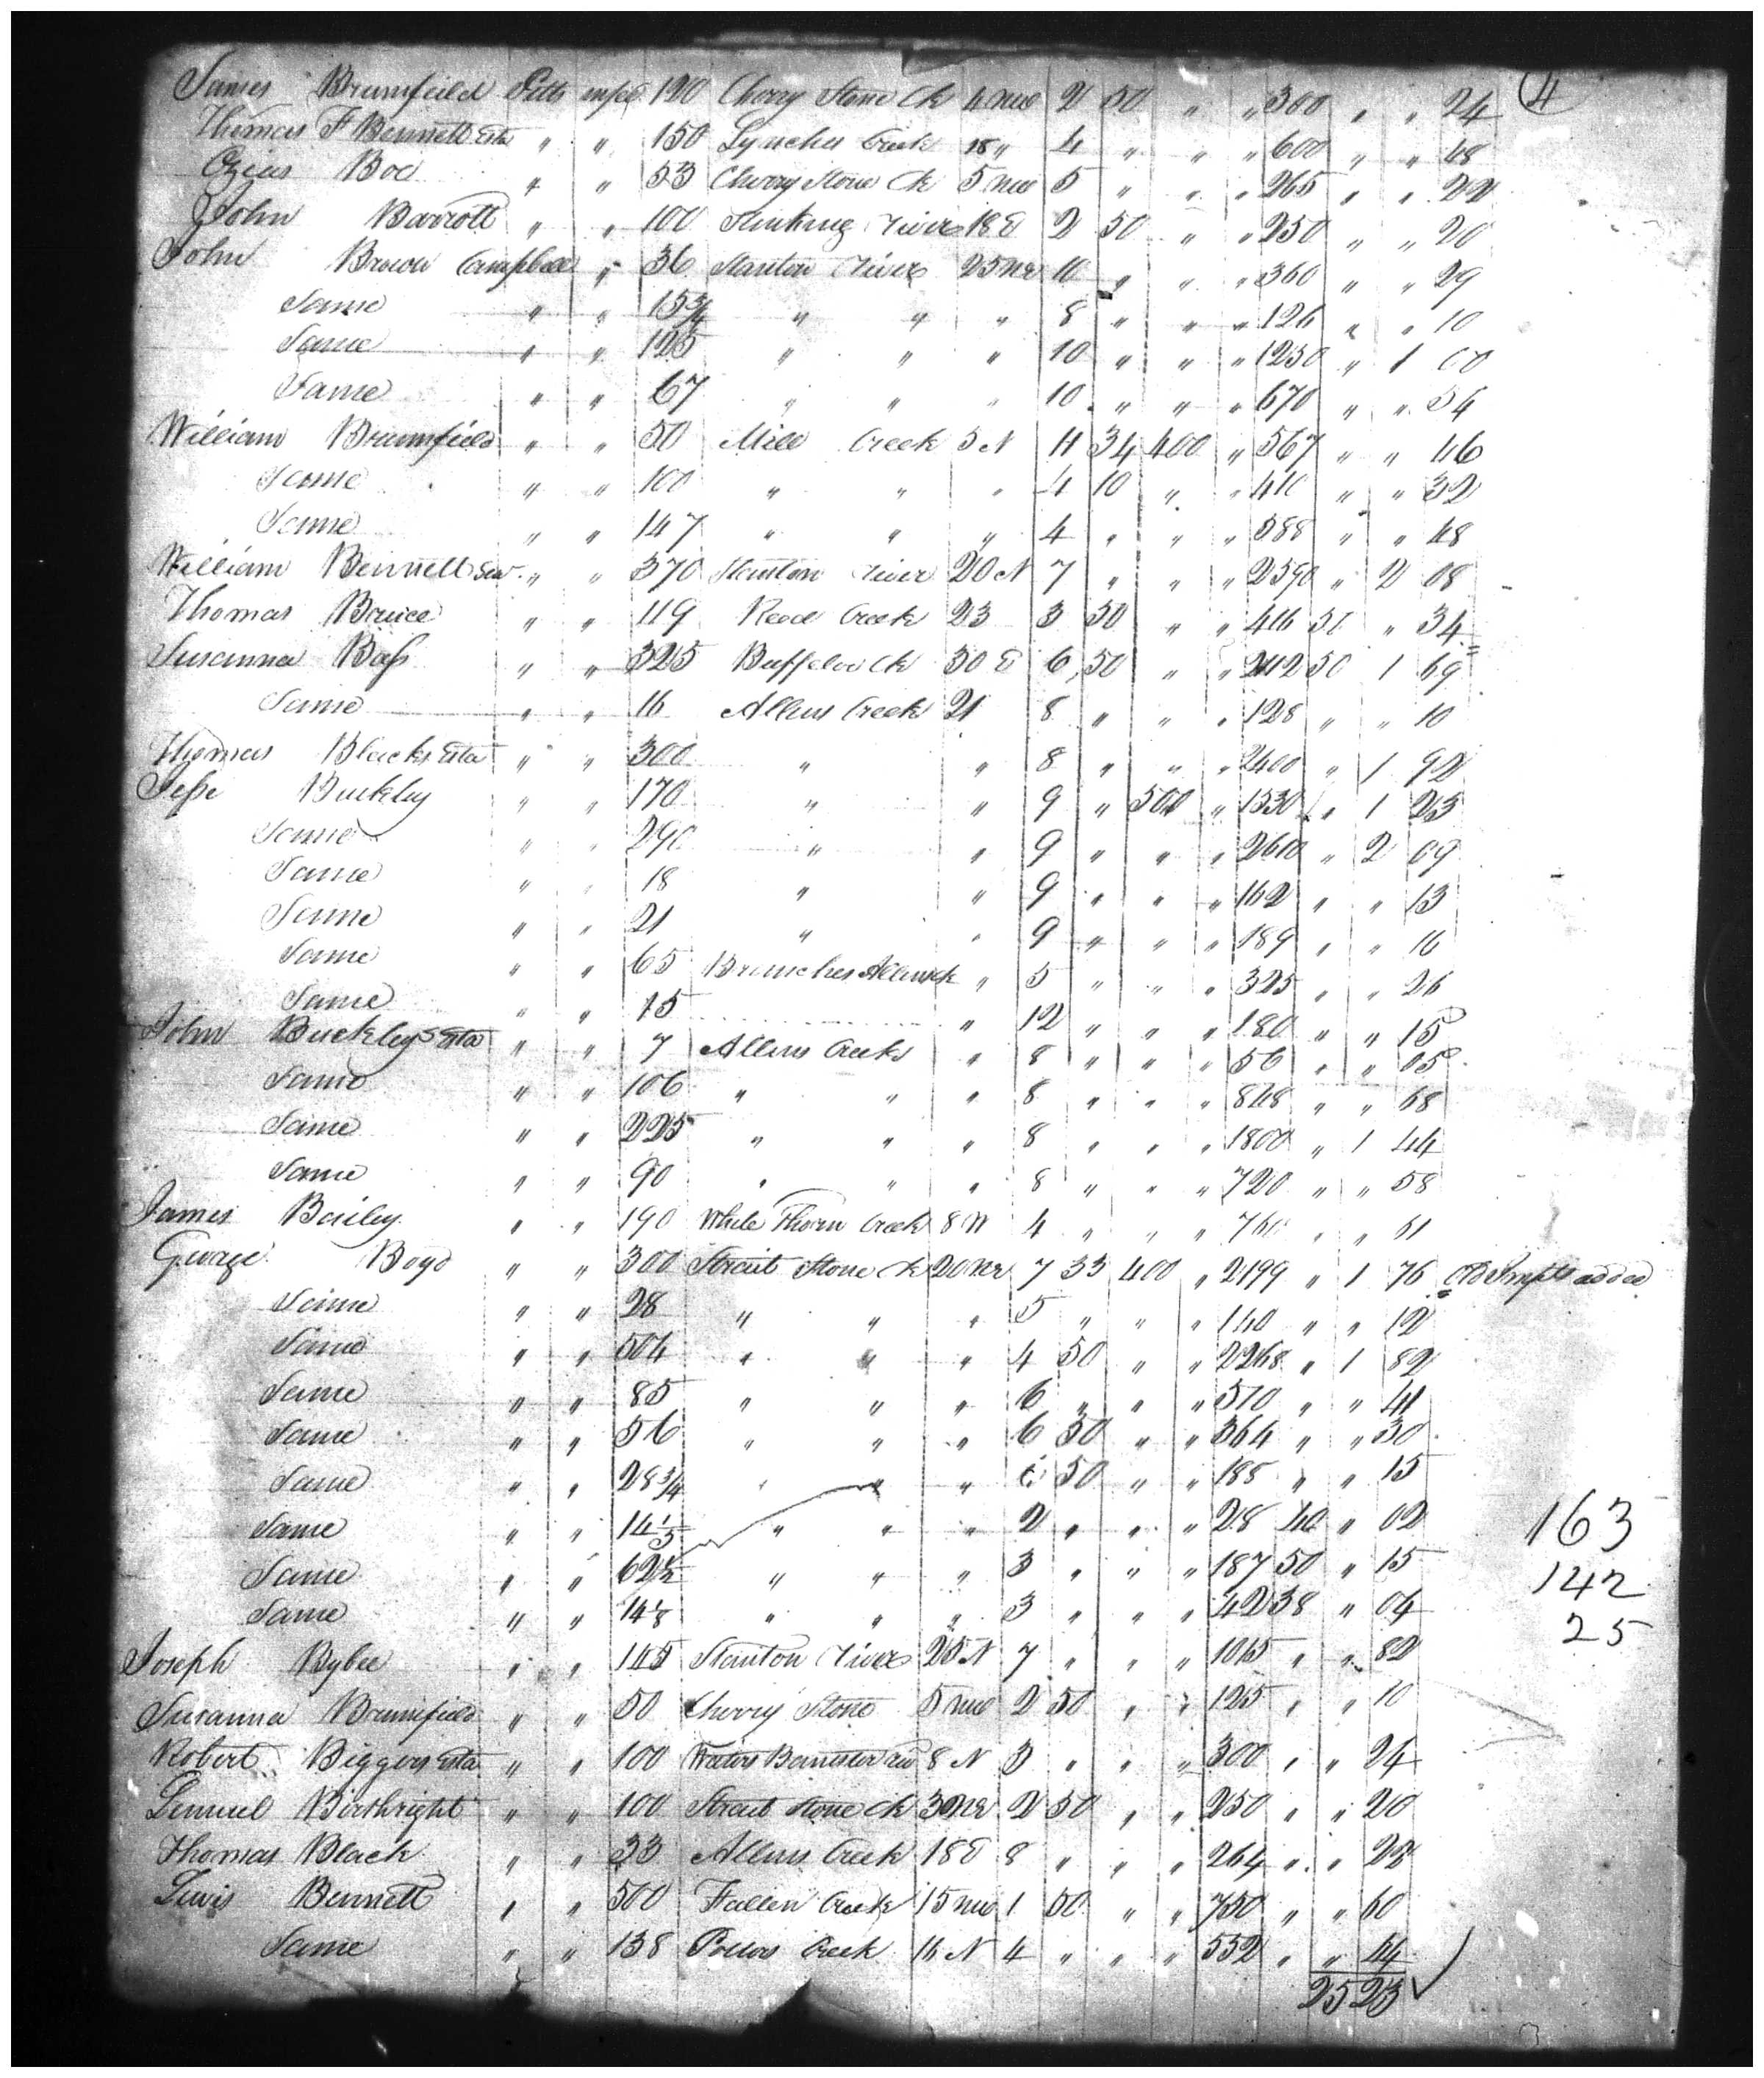 James Brumfield Pitts in fee 120 Cherry Stone Ck 4 NW 2 50 " " 300 " " 24 4
Thomas F Bennett Esta " " 150 Lynches Creek 18 " 4 " " " 600 " " 48
Ozias Boc " " 53 Cherry Stone Ck 5 NW 5 " " " 265 " " 22
John Barrott " " 100 Stinking River 18 E 2 50 " " 250 " " 20
John Brown Campbell " 36 Stanton River 25 NE 10 " " " 360 " " 29
Same " " 15 3/4 " " " 8 " " " 126 " " 10
Same " " 125 " " " 10 " " " 1250 " 1 00
Same " " 67 " " " 10 " " " 670 " " 54
William Brumfield " " 50 Mill Creek 5 N 11 34 400 " 567 " " 46
Same " " 100 " " " 4 10 " " 410 " " 32
Same " " 147 " " " 4 " " " 588 " " 48
William Bennett Senr " " 370 Stanton River 20 N 7 " " " 2590 " 2 08
Thomas Bruice " " 119 Reed Creek 23 3 50 " " 416 50 " 34
Susanna Bass " " 325 Buffeloe Ck 30 E 6 50 " " 2112 50 1 69
Same " " 16 Allens Creek 21 8 " " " 128 " " 10
Thomas Blacks Esta " " 300 " " 8 " " " 2400 " 1 92
Jesse Buckley " " 170 " " 9 " 500 " 1530 " 1 23
Same " " 290 " " 9 " " " 2610 " 2 09
Same " " 18 " " 9 " " " 162 " " 13
Same " " 21 " " 9 " " " 189 " " 16
Same " " 65 Branches Allens Ck " 5 " " " 325 " " 26
Same " " 15 " 12 " " " 180 " " 15
John Buckleys Esta " " 7 Allens Creek " 8 " " " 56 " " 05
Same " " 106 " " " 8 " " " 848 " " 68
Same " " 225 " " " 8 " " " 1800 " 1 44
Same " " 90 " " " 8 " " " 720 " " 58
James Bailey " " 190 White Thorn Creek 8 W 4 " " " 760 " " 61
George Boyd " " 300 Strait Stone Ck 20 NE 7 33 400 " 2199 " 1 76 Old Impts added
Same " " 28 " " " 5 " " " 140 " " 12
Same " " 504 " " " 4 50 " " 2268 " 1 82
Same " " 85 " " " 6 " " " 510 " " 41
Same " " 56 " " " 6 50 " " 364 " " 30
Same " " 28 3/4 " " " 6 50 " " 185 " " 15
Same " " 14 1/5 " " " 2 " " " 28 40 " 02
Same " " 62 1/2 " " " 3 " " " 187 50 " 15
Same " " 14 1/8 " " " 3 " " " 42 38 " 04
163
142
25
Joseph Bybee " " 145 Stanton River 25 N 7 " " " 1015 " " 82
Susanna Brumfield " " 50 Cherry Stone 5 NW 2 50 " " 125 " " 10
Robert Biggers Esta " " 100 Waters Banister Riv 8 N 3 " " " 300 " " 24
Lemuel Birthright " " 100 Strait Stone Ck 30 NE 2 50 " " 250 " " 20
Thomas Black " " 33 Allens Creek 18 E 8 " " " 264 " " 22
Lewis Bennett " " 500 Fallen Creek 15 NW 1 50 " " 750 " " 60
Same " " 138 Potters Creek 16 N 4 " " " 552 " " 44
25 23